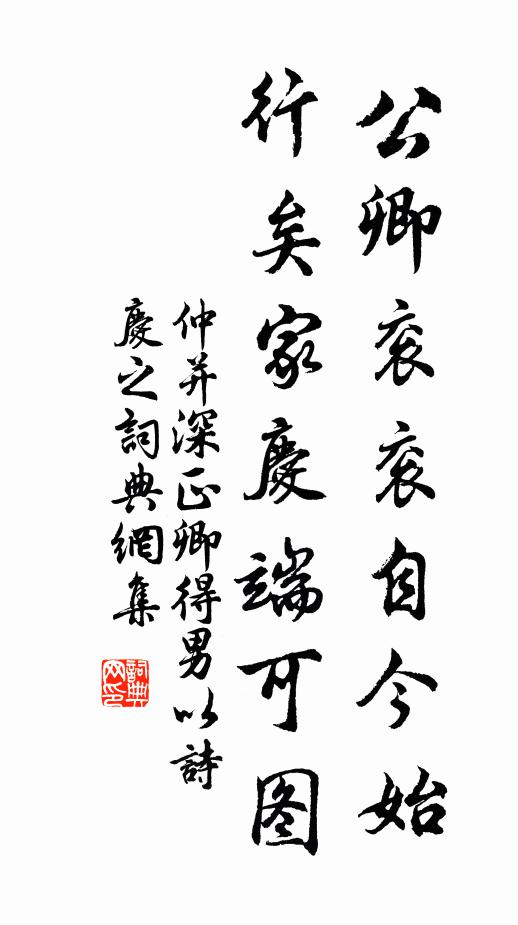 公卿衮衮自今始
行矣家慶端可图
仲并深正卿得男以詩
慶之詞典網集
詞典网印